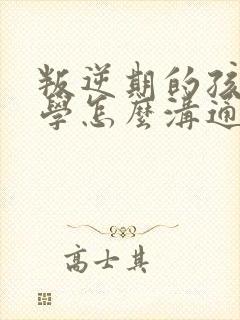 叛逆期的孩
學怎麼溝通
高士其